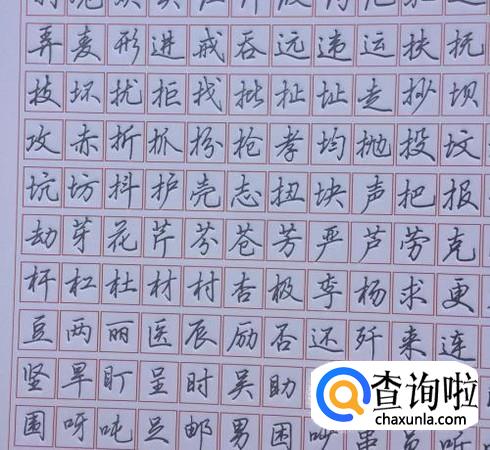 弄麦形进戒吞远违运扶抚
技坏扰拒找批扯址走抄坝
攻赤折抓扮抢孝均抛投坟
坑坊抖护壳志扭块声把报
劫芽花芹芬苍芳严芦劳克
杆杠杜材村杏极李杨求更
豆两丽医辰励否还歼来连
坚旱盯呈时吴助
围呀吨足邮男困
查询啦
chaxunla.com